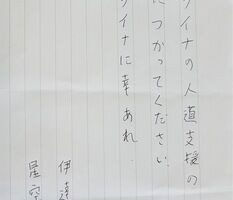 イナの人道支援の
につかってください.
イナに幸あれ.
伊達
星空